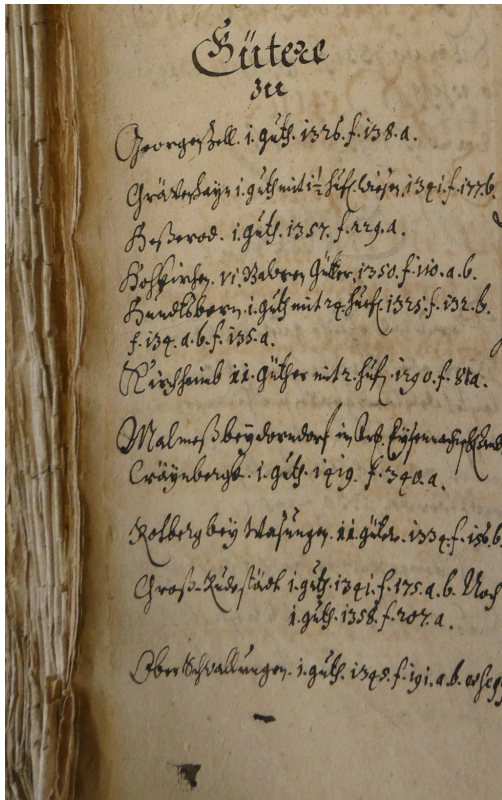 Gütere
zu
Georgeßzell. i. guth. 1326. f. 138. a.
Grävenhayn i. guth mit 1½ hufl. wiesen 1341. f. 177 b.
Heßerod. i. guth. 1357. f. 229. a.
1350. f. 110. a. b.
i. guth mit 24 1325. f. 132. b.
f. 134. a. b. f. 135. a.
Kirchheimb ii. Güther mit 2. huf. 1290. f. 81a.
Malmeß bey dorndorf
Cräynbergk. i. guth. 1419. f. 340. a.
bey Wasungen. ii. güter. 1334. f. 156. b
Groß-Rudestädt i. guth. 1341. f. 175. a. b. Noch
i. guth. 1358. f. 207. a.
Ober Schwallungen. i. guth. 1345. f. 191. a. b.